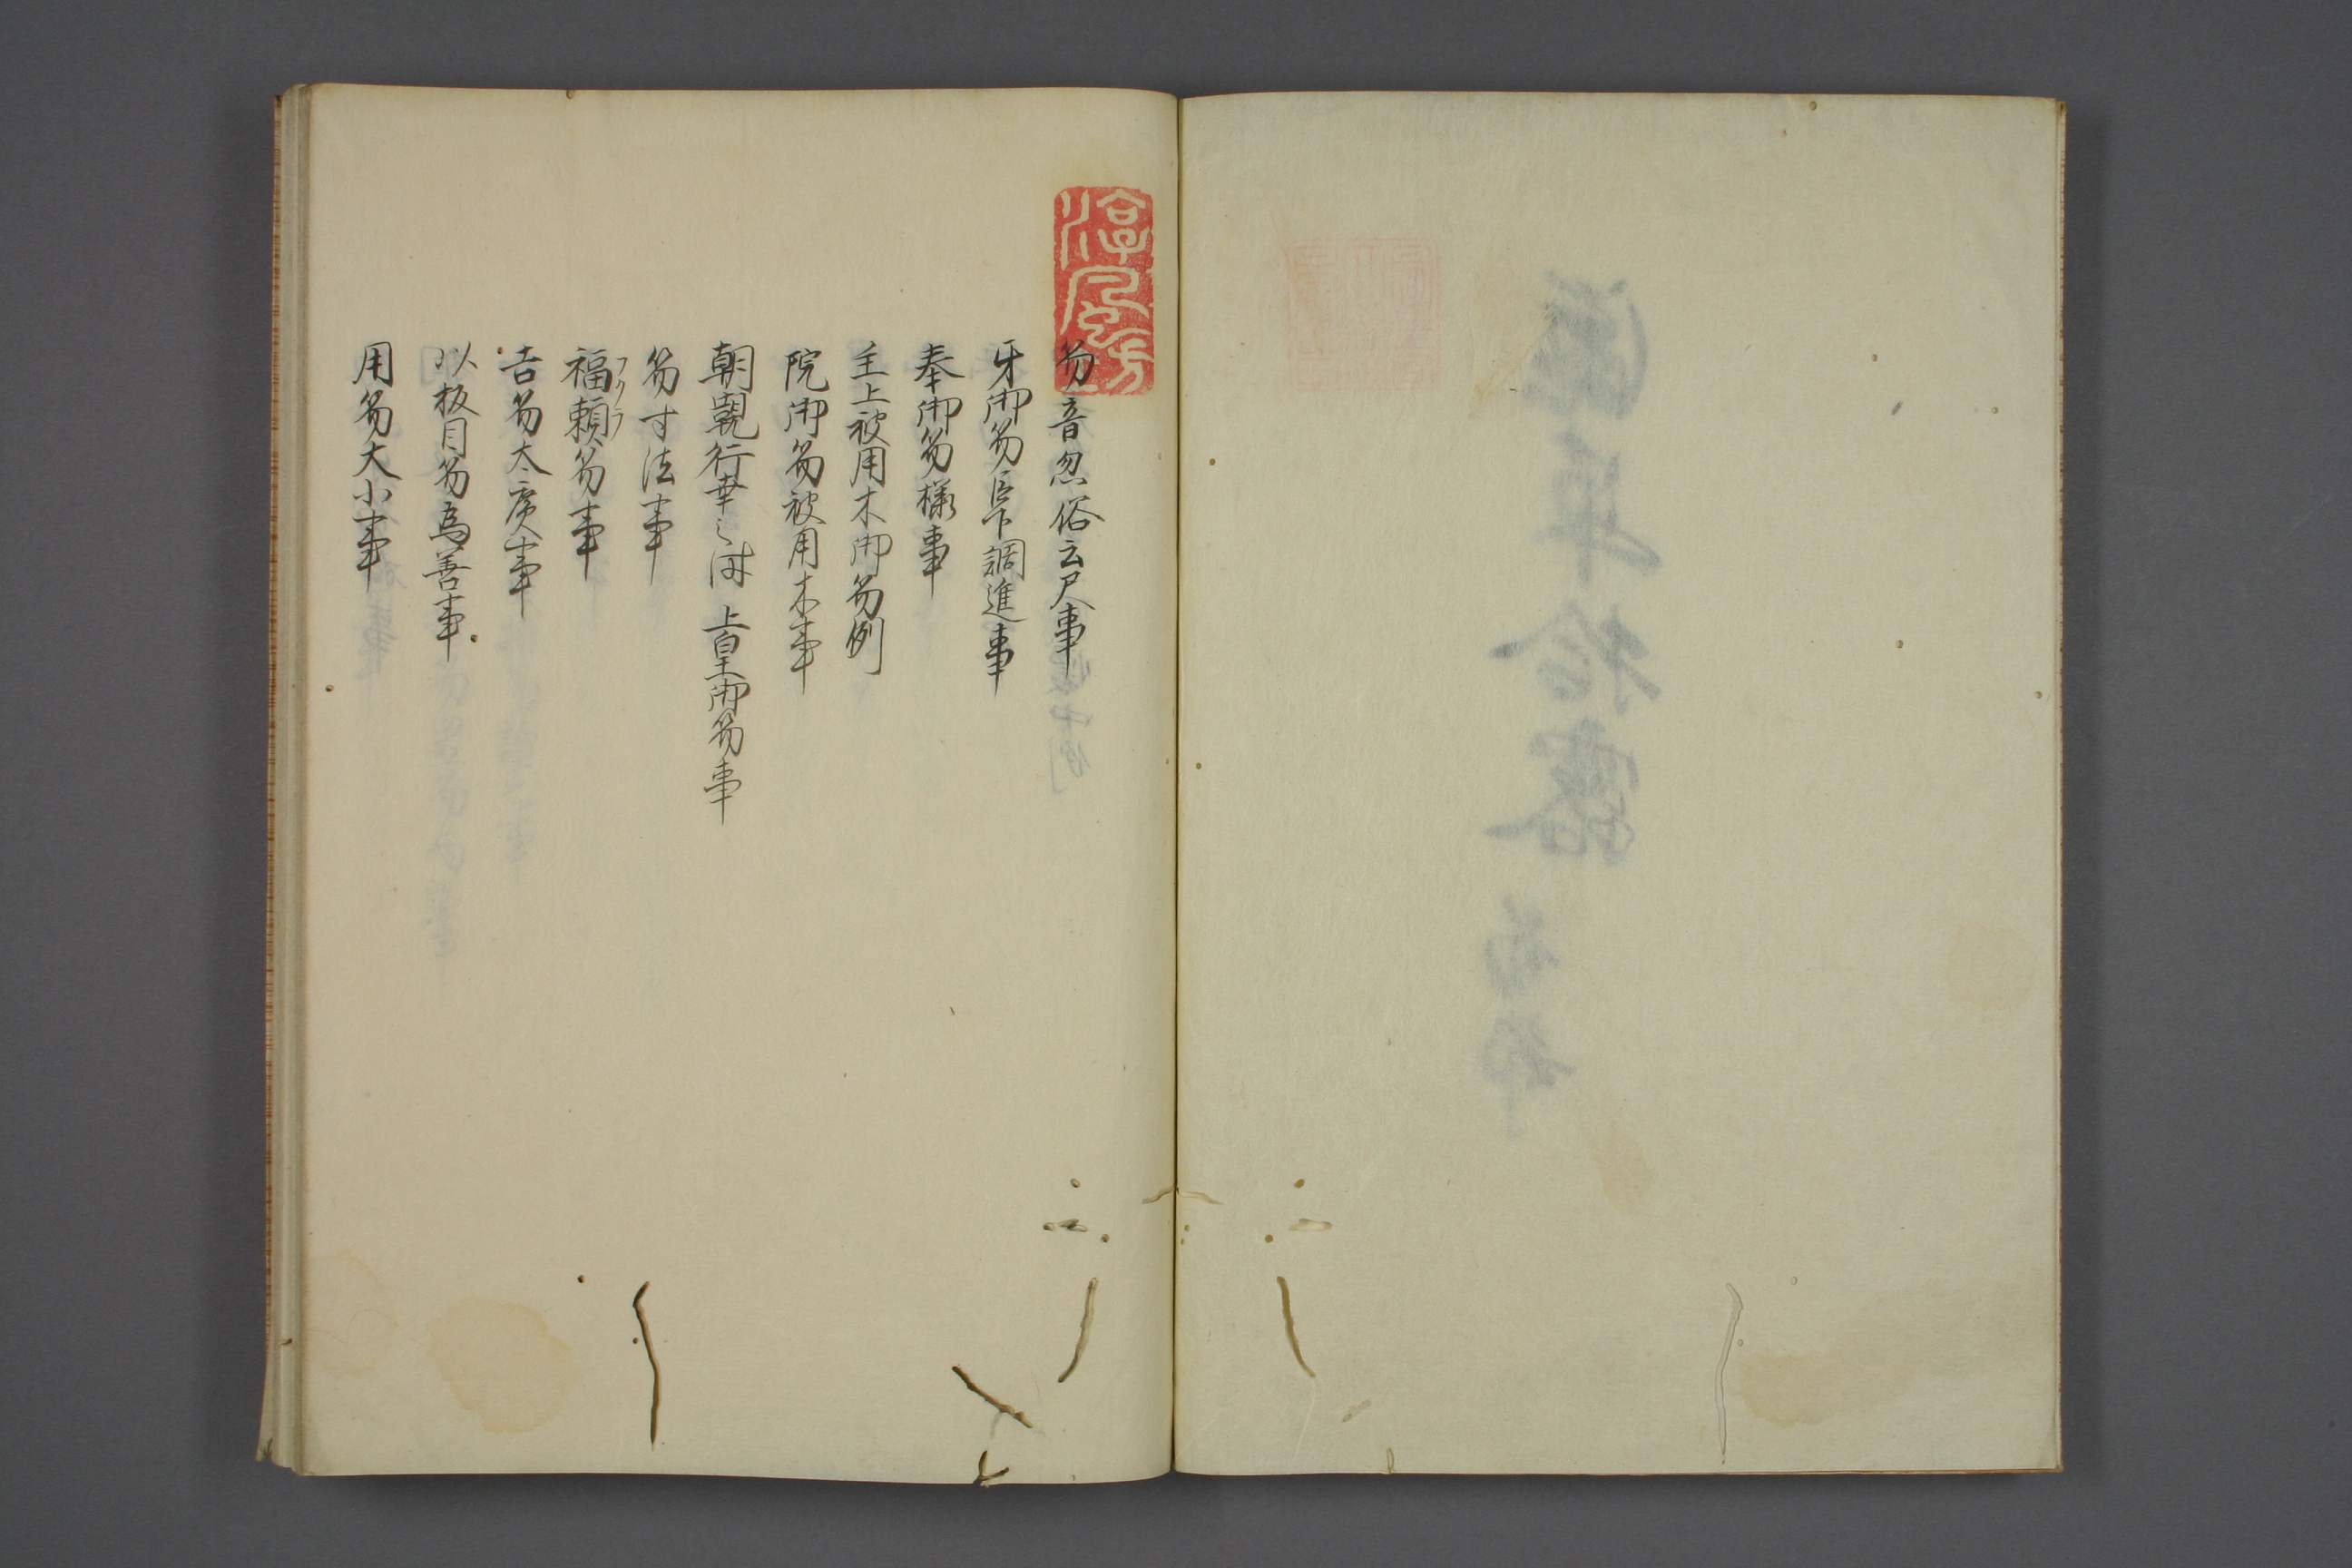 淳風坊
笏音忽俗云尺事
牙御笏臣下調進事
奉御笏様事
主上被用木御笏例
院御笏被用木事
朝覲行幸之時 上皇御笏事
笏寸法事
福頼笏事
フクラ
吉笏太広事
以板目笏為善事
用笏大小事